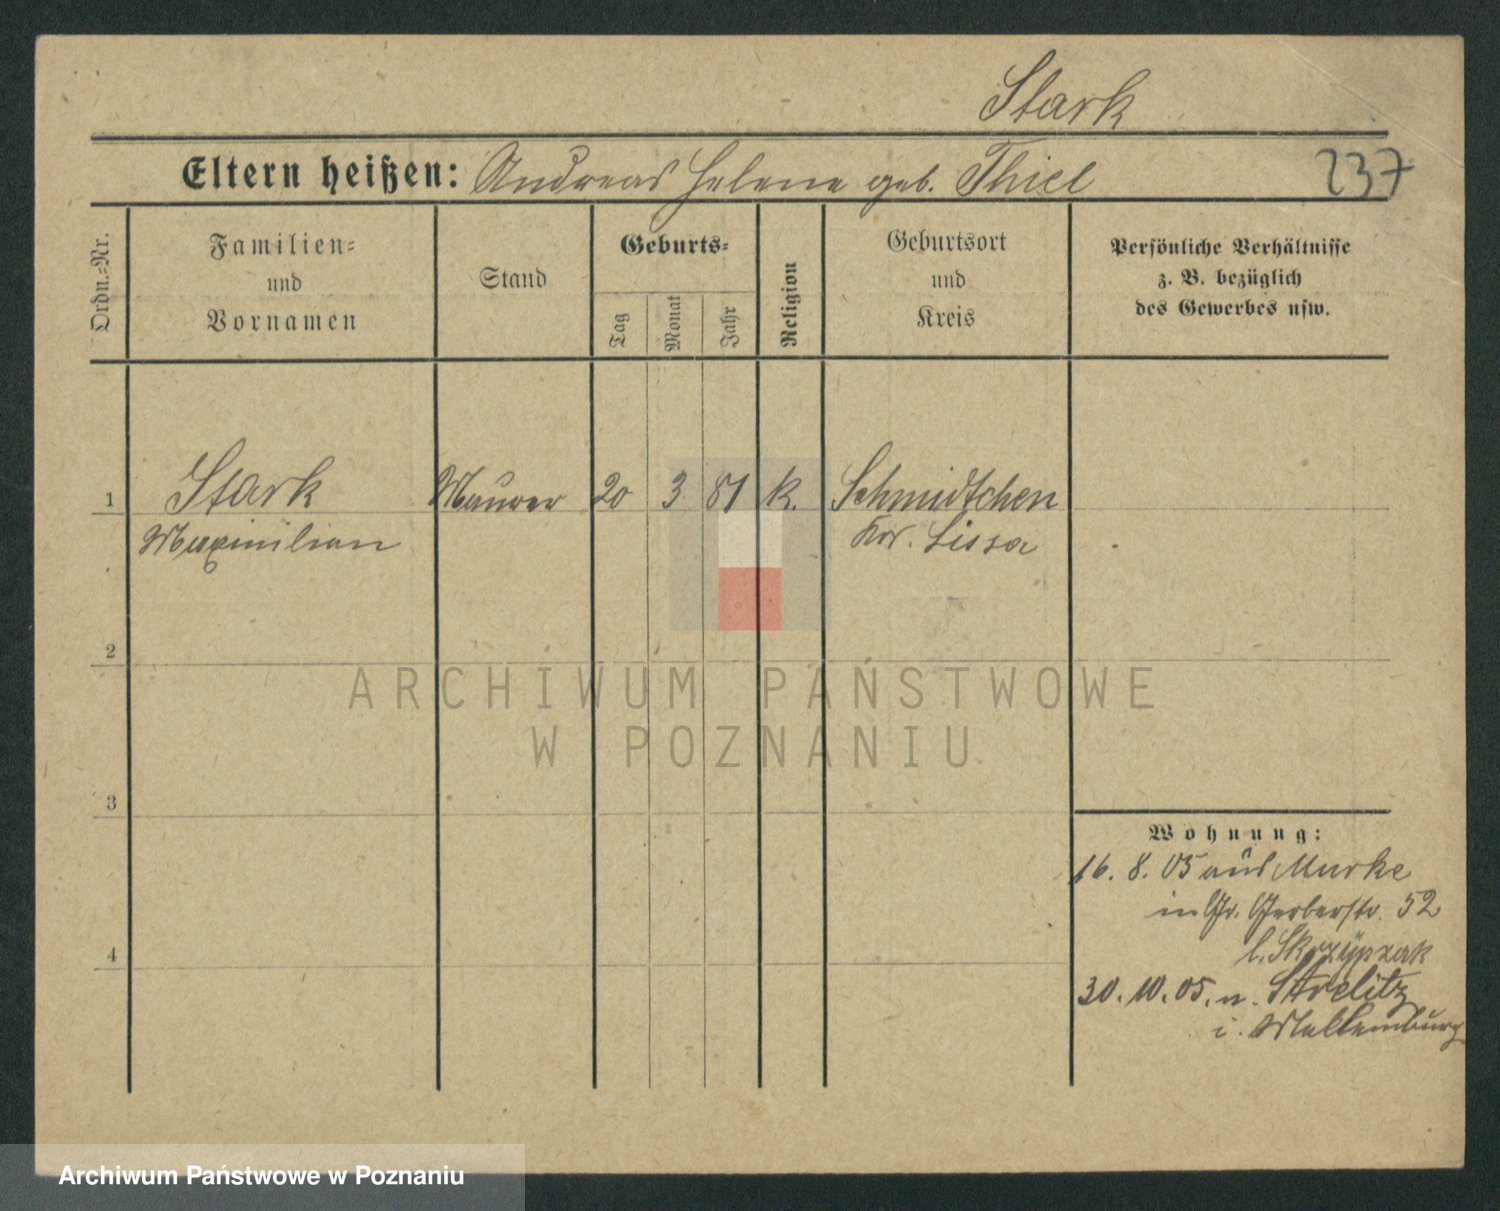 Stark
Eltern heißen: Andreas Helene geb. Thiel
237
Ordn.-Nr.
Familien-
und
Vornamen
Stand
Geburts-
Tag
Monat
Jahr
Religion
Geburtsort
und
Kreis
Persönliche Verhältnisse
z. B. bezüglich
des Gewerbes usw.
1 Stark Maurer 20 3 81 k. Schmidtchen
Maximilian Kr. Lissa
2
ARCHIWUM PAŃSTWOWE
W POZNANIU
3
Wohnung:
16. 8. 05 aus Murke
in Gr. Gerberstr. 52
b. Skrzypzak
4
30. 10. 05. n. Strelitz
i. Meklemburg
Archiwum Państwowe w Poznaniu